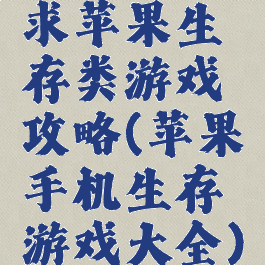 求苹果生
存类游戏
攻略(苹果
手机生存
游戏大全)